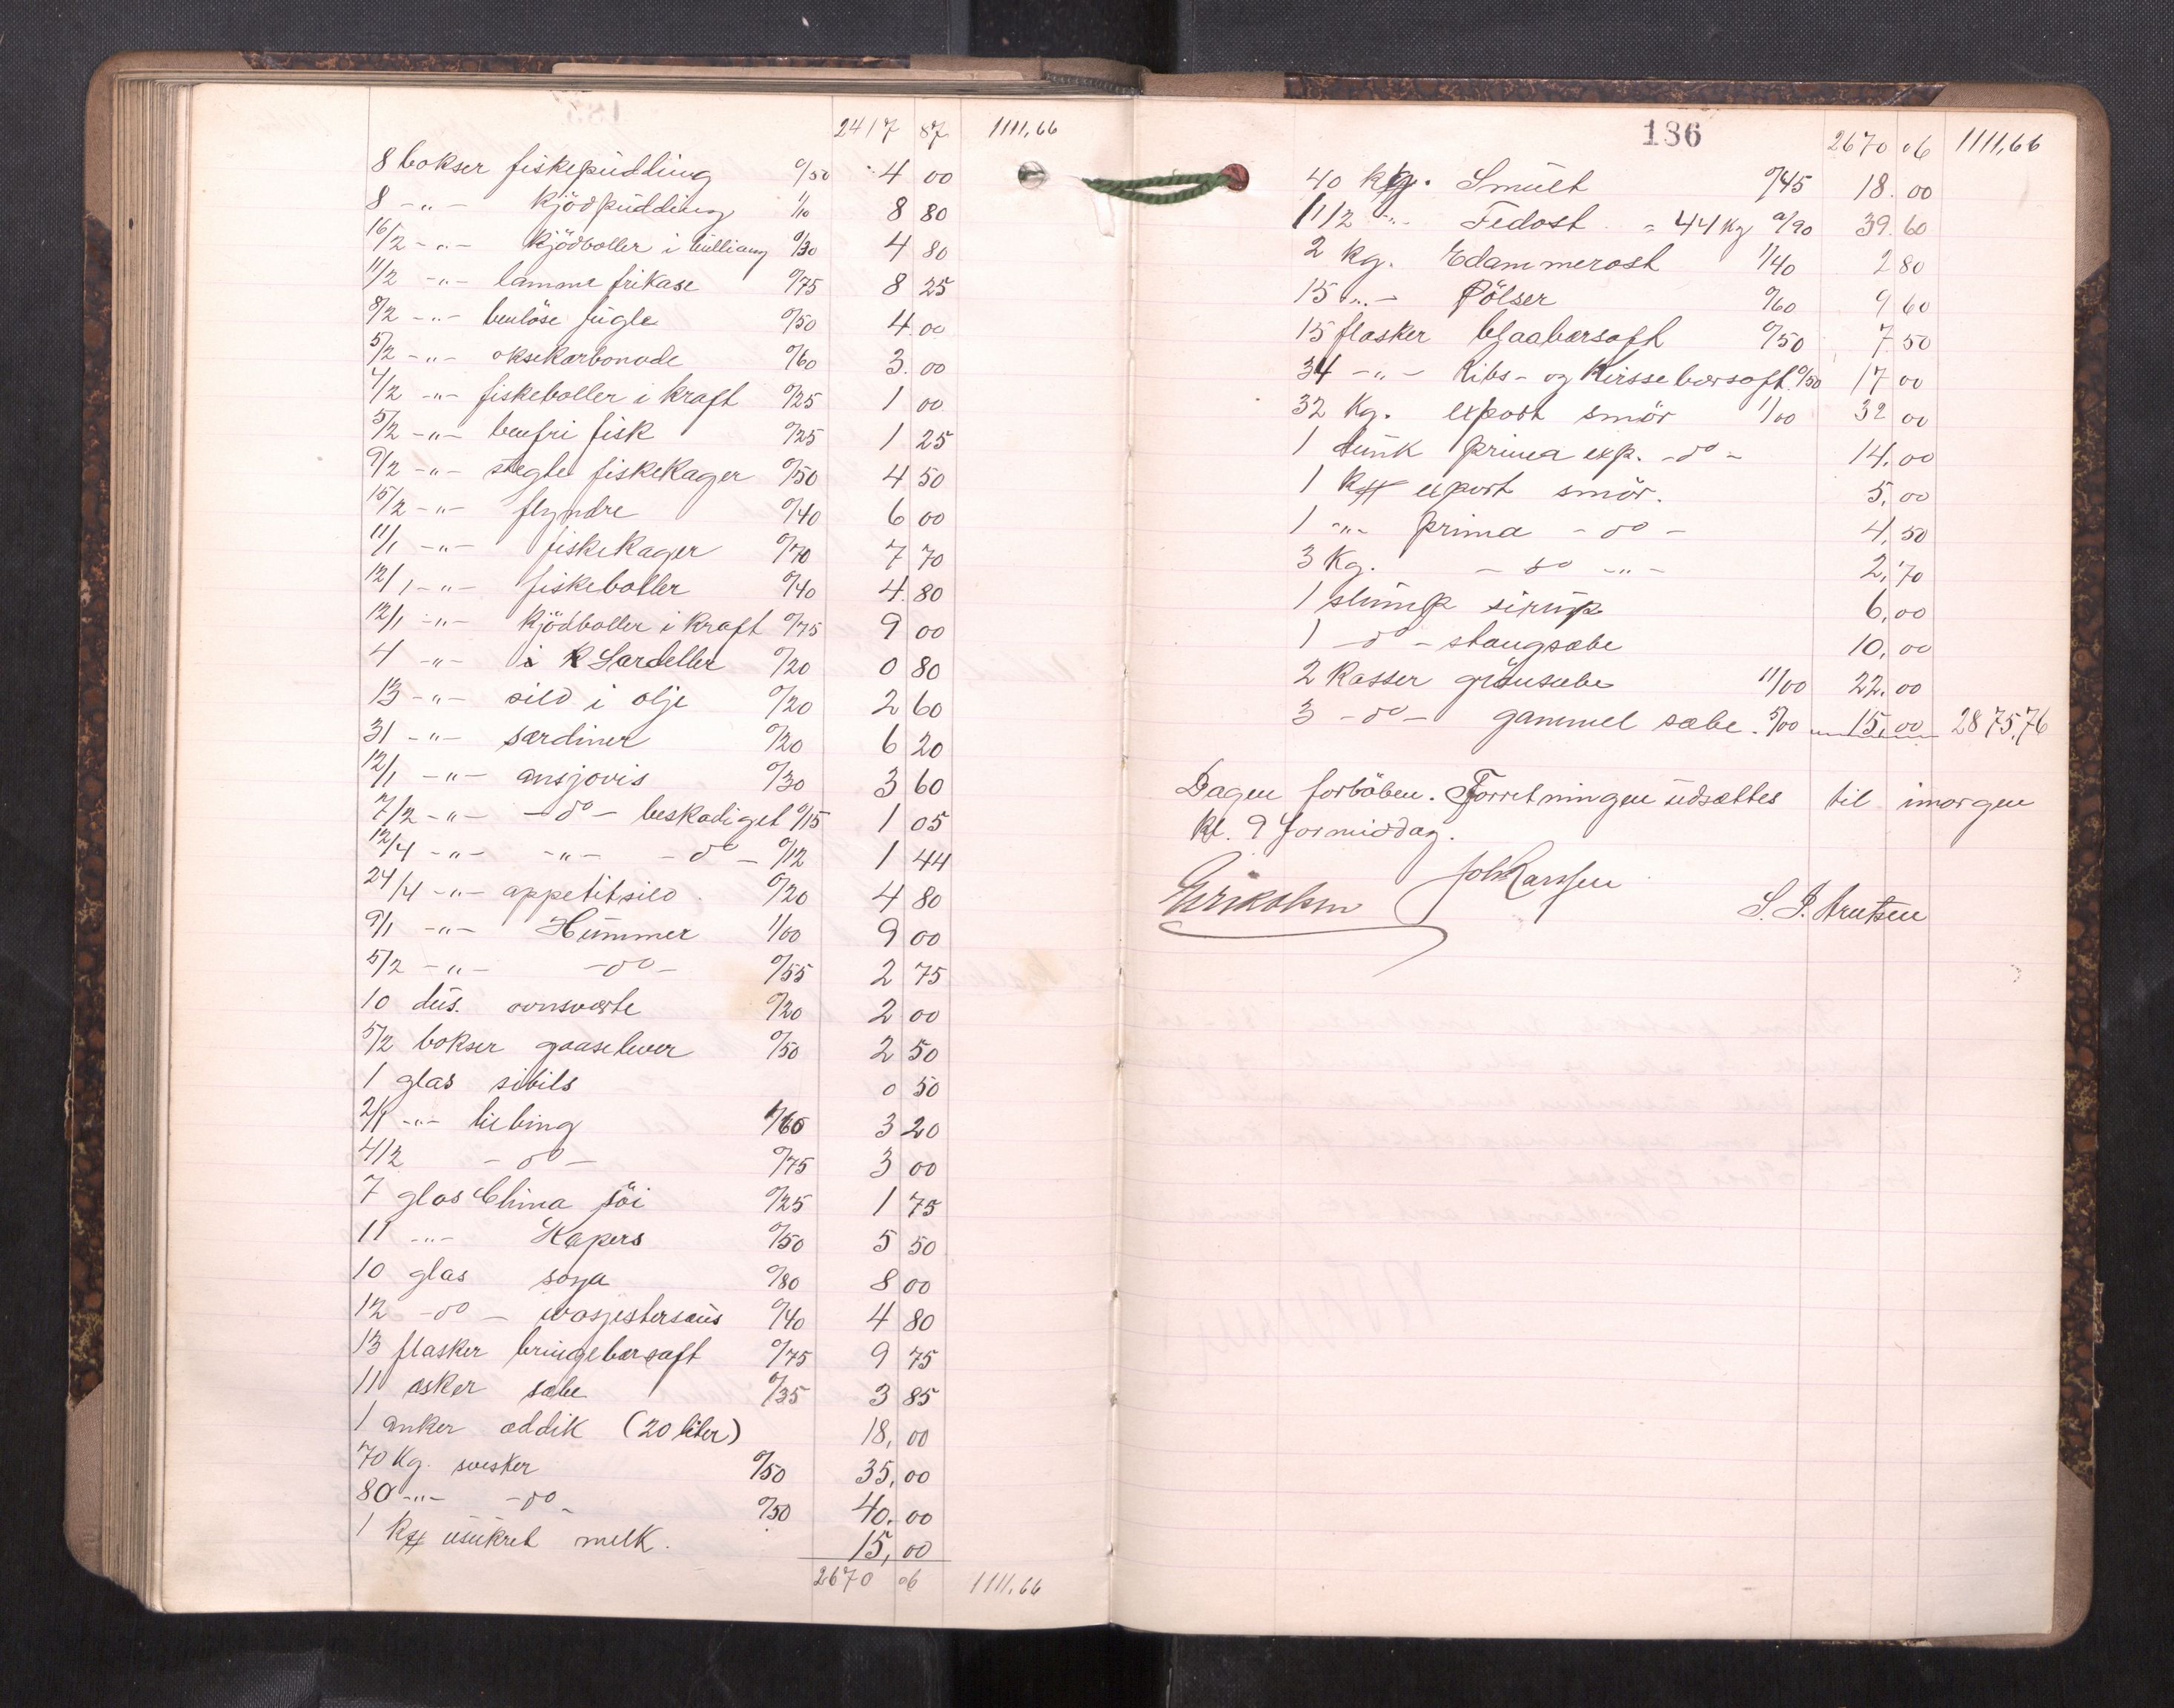 2417 87 1111,66
8 bokser fiskepudding 0/50 4 00
8 -"- kjödpudding 1/10 8 80
16/2 -"- kjödboller i bulliang 0/30 4 80
11/2 -"- lamme frikase 0/75 8 25
8/2 -"- benlöse fugle 0/50 4.00
5/2 -"- oksekarbonade 0/60 3.00
4/2 -"- fiskeboller i kraft 0/25 1 00
5/2 -"- benfri fisk 0/25 1 25
9/2 -"- stegte fiskekager 0/50 4 50
15/2 -"- flyndre 0/40 6 00
11/1 -"- fiskekager 0/70 7 70
12/1 -"- fiskeboller 0/40 4.80
12/1 -"- kjödboller i kraft 0/75 9 00
4 -"- Sardeller 0/20 0 80
13 -"- sild i olje 0/20 2 60
31 -"- sardiner 0/20 6 20
12/1 -"- ansjovis 0/30 3 60
7/2 -"- -do- beskadiget 0/15 1 05
12/4 -"- -"- -do- 0/12 1 44
24/4 -"- appetitsild 0/20 4 80
9/1 -"- Hummer 1/00 9 00
5/2 -"- -do- 0/55 2 75
10 dus. ovnsværte 0/20 2 00
5/2 bokser gaaselever 0/50 2 50
1 glas 0 50
2/1 -"- 1/60 3 20
4/2 -do- 0/75 3 00
7 glas China söi 0/25 1 75
11 -"- Kapers 0/50 5 50
10 glas soya 0/80 8 00
12 -do- 0/40 4 80
13 flasker bringebærsaft 0/75 9 75
11 æsker sæbe 0/35 3 85
1 anker eddik (20 liter) 18,00
70 Kg. svesker 0/50 35,00
80 -"- -do- 0/50 40.00
1 Ks usukret melk. 15,00
2670 06 1111,66
186
2670 06 1111,66
40 kg. Smult 0/45 18.00
11/2 -"- Fedost = 44 Kg 0/90 39.60
2 kg. Edammerost 1/40 2 80
15 -"- Pölser 0/60 9 60
15 flasker blaabærsaft 0/50 7.50
34 -"- Ribs- og Kirssebærsaft 0/50 17 00
32 Kg. export smör 1/00 32 00
1 dunk prima exp. -do- 14.00
1 Ks export smör. 5.00
1 -"- prima -do- 4,50
3 Kg. -do -"- 2,70
1 slump sirup 6,00
1 -do- stangsæbe 10,00
2 Kasser grönsæbe 11/00 22.00
3 -do- gammel sæbe. 5/00 15,00 2875,76
Dagen forlöben. Forretningen udsættes til imorgen
kl. 9 formiddag.
Eriksen Joh Larssen S. J. Arntsen